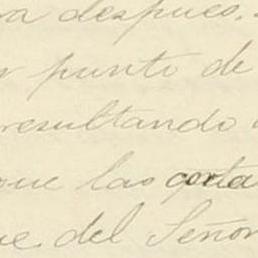 ra despues.
punto de
resultando
que las corta
del Señor